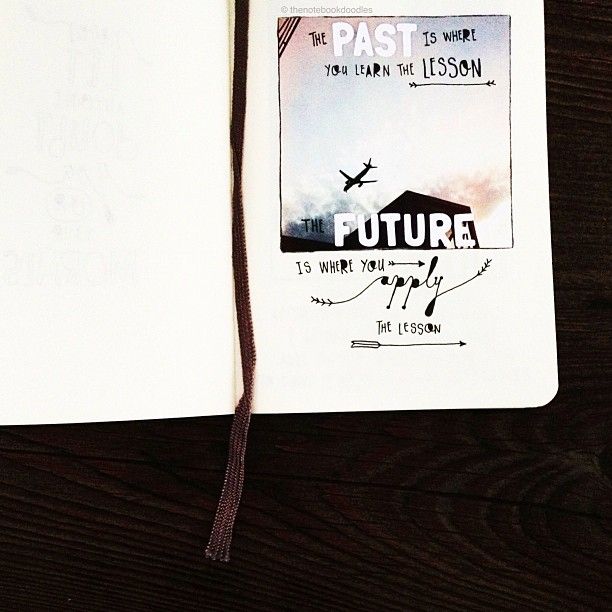 © thenotebookdoodles
THE PAST IS WHERE
YOU LEARN THE LESSON
THE FUTURE
IS WHERE YOU
apply
THE LESSON